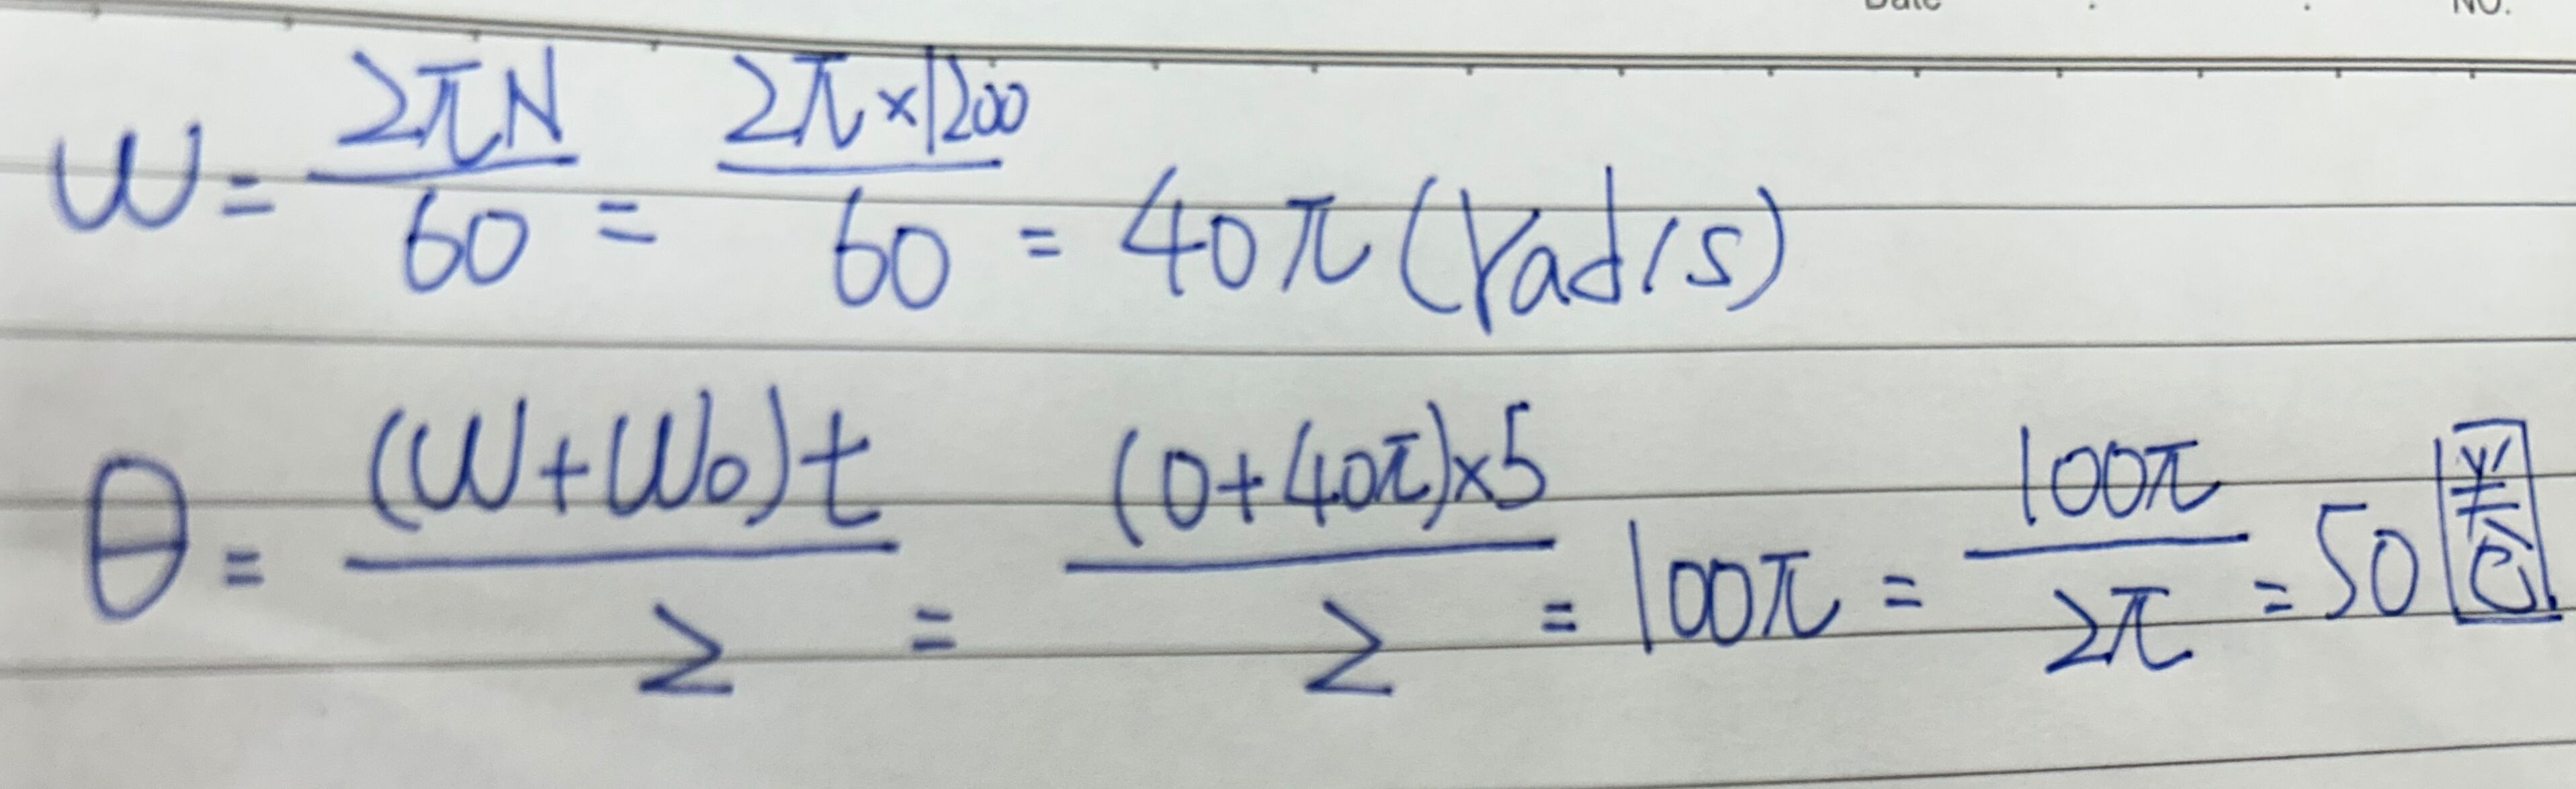 Date . . No.
ω = 2πN/60 = 2π×1200/60 = 40π (rad/s)
θ = (ω+ω₀)t/2 = (0+40π)×5/2 = 100π = 100π/2π = 50